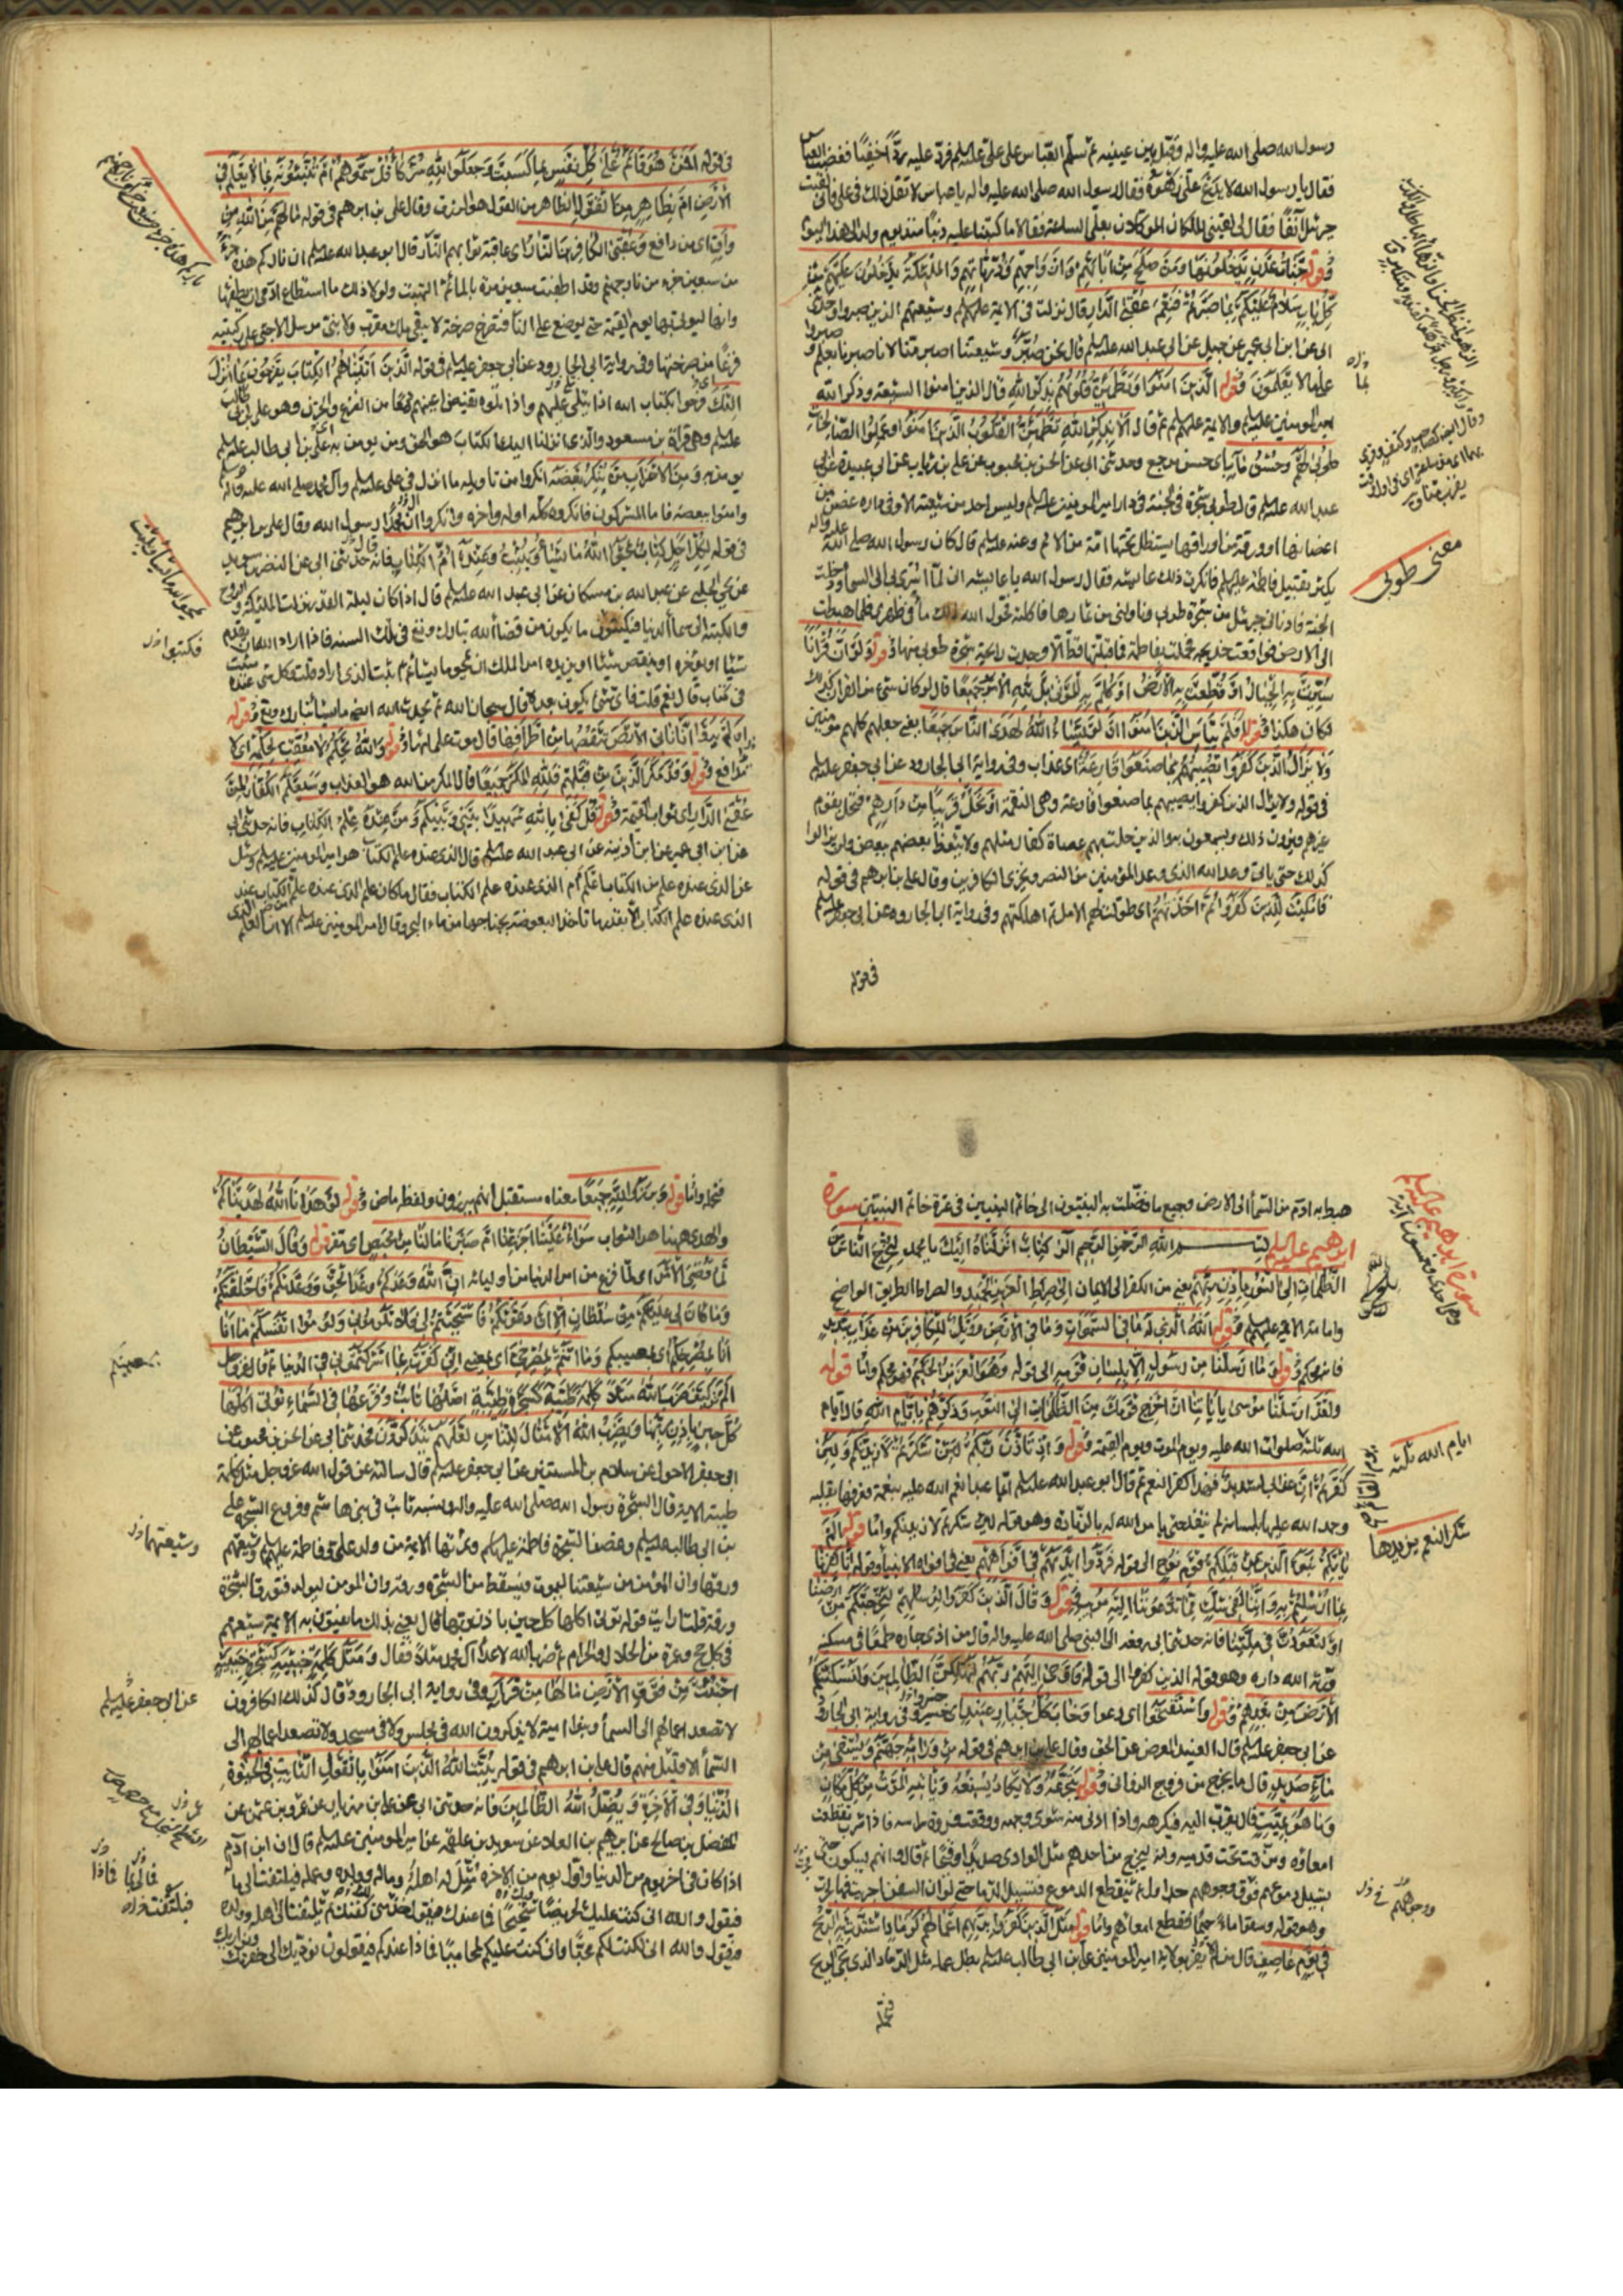 رسول الله صلى الله عليه واله وقبل بين عينيه ثم سلم العباس على علي عليه السلم فرد عليه ردا خفيفا فغضب العباس
فقال يا رسول الله لا يدع علي زهوه فقال رسول الله صلى الله عليه واله يا عباس لا تقل ذلك في علي فاني لقيت
جبرئيل آنفا فقال لي لقيني الملكان الموكلان بعلي الساعة فقالا ما كتبنا عليه ذنبا منذ يوم ولد الى هذا اليوم
وقوله جنات عدن يدخلونها ومن صلح من ابائهم وازواجهم وذرياتهم والملئكة يدخلون عليهم من
كل باب سلام عليكم بما صبرتم فنعم عقبى الدار قال نزلت في الايمة عليهم السلم وشيعتهم الذين صبروا وحدثني
ابي عن ابن ابي عمير عن جميل عن ابي عبد الله عليه السلم قال نحن صبر وشيعتنا اصبر منا لانا صبرنا بعلم و صبروا
على ما لا يعلمون وقوله الذين آمنوا وتطمئن قلوبهم بذكر الله قال الذين امنوا الشيعة وذكر الله
امير المومنين عليه السلم والايمة عليهم السلم ثم قال الا بذكر الله تطمئن القلوب الذين آمنوا وعملوا الصالحات
طوبى لهم وحسن مآب اي حسن مرجع وحدثني ابي عن الحسن بن محبوب عن علي بن رئاب عن ابي عبيدة عن ابي
عبد الله عليه السلم قال طوبى شجرة في الجنة في دار امير المومنين عليه السلم وليس احد من شيعته الا وفي داره غصن من
اغصانها او ورقة من اوراقها يستظل تحتها امة من الامم وعنه عليه السلم قال كان رسول الله صلى الله عليه واله
يكثر تقبيل فاطمة عليها السلم فانكرت ذلك عايشه فقال رسول الله يا عايشه اني لما اسري بي الى السماء دخلت
الجنة فادناني جبرئيل من شجرة طوبى وناولني من ثمارها فاكلته فحول الله ذلك ماء في ظهري فلما هبطت
الى الارض فواقعت خديجه فحملت بفاطمة فما قبلتها قط الا وجدت رايحة شجرة طوبى منها وقوله ولو ان قرآنا
سيرت به الجبال او قطعت به الارض او كلم به الموتى بل لله الامر جميعا قال لو كان شيء من القران كذلك
لكان هكذا وقوله افلم ييأس الذين آمنوا ان لو يشاء الله لهدى الناس جميعا يعني جعلهم كلهم مومنين
ولا يزال الذين كفروا تصيبهم بما صنعوا قارعة اي عذاب وفي رواية ابي الجارود عن ابي جعفر عليه السلم
في قوله ولا يزال الذين كفروا تصيبهم بما صنعوا قارعة وهي النقمة او تحل قريبا من دارهم فتحل بقوم
غيرهم فيرون ذلك ويسمعون به والذين حلت بهم عصاة كفار مثلهم ولا يتعظ بعضهم ببعض ولن يزالوا
كذلك حتى ياتي وعد الله الذي وعد المؤمنين من النصر ويخزي الكافرين وقال علي بن ابرهيم في قوله
فامليت للذين كفروا ثم اخذتهم اي طولت لهم الامل ثم اهلكتهم وفي رواية ابي الجارود عن ابي جعفر عليه السلم
في قوله
معنى طوبى
في قوله افمن هو قائم على كل نفس بما كسبت وجعلوا لله شركاء قل سموهم ام تنبئونه بما لا يعلم في
الارض ام بظاهر من القول الظاهر من القول هو الرزق وقال علي بن ابرهيم في قوله ما لهم من الله من
واق اي من دافع وعقبى الكافرين النار اي عاقبة ثوابهم النار قال ابو عبد الله عليه السلم ان ناركم هذه جزء
من سبعين جزء من نار جهنم وقد اطفئت سبعين مرة بالماء ثم التهبت ولولا ذلك ما استطاع ادمي ان يطفئها
وانها ليؤتى بها يوم القيمة حتى يوضع على النار فتصرخ صرخة لا يبقى ملك مقرب ولا نبي مرسل الا جثى على ركبتيه
فزعا من صرختها وفي رواية ابي الجارود عن ابي جعفر عليه السلم في قوله الذين آتيناهم الكتاب يفرحون بما انزل
اليك فرحوا بكتاب الله اذا يتلى عليهم واذا تلوه تفيض اعينهم دمعا من الفزع والحزن وهو علي بن ابي طالب
عليه السلم وهي قراءة بن مسعود والذي انزلنا اليك الكتاب هو الحق ومن يومن به اي علي بن ابي طالب عليه السلم
يومن به ومن الاحزاب من ينكر بعضه انكروا من تاويله ما انزل في علي عليه السلم وآل محمد صلى الله عليه واله
وامنوا ببعضه فاما المشركون فانكروه كله اوله واخره وانكروا ان محمدا رسول الله وقال علي بن ابرهيم
في قوله لكل اجل كتاب يمحو الله ما يشاء ويثبت وعنده ام الكتاب فانه حدثني ابي عن النضر بن سويد
عن يحيى الحلبي عن عبد الله بن مسكان عن ابي عبد الله عليه السلم قال اذا كان ليلة القدر نزلت الملئكة والروح
والكتبة الى سماء الدنيا فيكتبون ما يكون من قضاء الله تبارك وتع في تلك السنه فاذا اراد الله ان يقدم
شيئا او يؤخره او ينقص شيئا او يزيده امر الملك ان يمحو ما يشاء ثم يثبت الذي اراد قلت وكل شيء عنده
في كتاب قال نعم قلت فاي شيء يكون بعده قال سبحان الله ثم يحدث الله ايضا ما يشاء تبارك وتع وقوله
اولم يروا انا ناتي الارض ننقصها من اطرافها قال موت علمائها وقوله والله يحكم لا معقب لحكمه اي لا
مدافع وقوله وقد مكر الذين من قبلهم فلله المكر جميعا قال المكر من الله هو العذاب وسيعلم الكفار لمن
عقبى الدار اي ثواب القيمة وقوله قل كفى بالله شهيدا بيني وبينكم ومن عنده علم الكتاب فانه حدثني ابي
عن ابن ابي عمير عن ابن اذينه عن ابي عبد الله عليه السلم قال الذي عنده علم الكتاب هو امير المومنين عليه السلم وسئل
عن الذي عنده علم من الكتاب اعلم ام الذي عنده علم الكتاب فقال ما كان علم الذي عنده علم من الكتاب عند
الذي عنده علم الكتاب الا بقدر ما تاخذ البعوضة بجناحها من ماء البحر وقال امير المومنين عليه السلم الا ان العلم الذي
هبط به ادم من السماء الى الارض وجميع ما فضلت به النبيون الى خاتم النبيين في عترة خاتم النبيين سورة
ابرهيم عليه السلم بسم الله الرحمن الرحيم الر كتاب انزلناه اليك يا محمد لتخرج الناس من
الظلمات الى النور باذن ربهم يعني من الكفر الى الايمان الى صراط العزيز الحميد والصراط الطريق الواضح
وامامة الايمة عليهم السلم وقوله الله الذي له ما في السموات وما في الارض وويل للكافرين من عذاب شديد
وقوله وما ارسلنا من رسول الا بلسان قومه الى قوله وهو العزيز الحكيم فهو محكم واما قوله
ولقد ارسلنا موسى باياتنا ان اخرج قومك من الظلمات الى النور وذكرهم بايام الله قال ايام
الله ثلثة ويوم الموت ويوم القيمة وقوله واذ تاذن ربكم لئن شكرتم لازيدنكم ولئن
كفرتم ان عذابي لشديد فهذا كفر النعم ثم قال ابو عبد الله عليه السلم ايما عبد انعم الله عليه بنعمة فعرفها بقلبه
وحمد الله عليها بلسانه لم تنفد حتى يامر الله له بالزيادة وهو قوله لئن شكرتم لازيدنكم واما قوله الم
ياتكم نبؤا الذين من قبلكم قوم نوح الى قوله فردوا ايديهم في افواههم يعني في افواه الانبياء وقوله انا كفرنا
بما ارسلتم به وانا لفي شك مما تدعوننا اليه مريب وقوله وقال الذين كفروا لرسلهم لنخرجنكم من ارضنا
او لتعودن في ملتنا فانه حدثني ابي رفعه الى النبي صلى الله عليه واله قال من اذى جاره طمعا في مسكنه
ورثه الله داره وهو قوله الذين كفروا الى قوله فاوحى اليهم ربهم لنهلكن الظالمين ولنسكننكم
الارض من بعدهم وقوله واستفتحوا اي دعوا وخاب كل جبار عنيد اي خسر وفي رواية ابي الجارود
عن ابي جعفر عليه السلم قال العنيد المعرض عن الحق وقال علي بن ابرهيم في قوله من ورائه جهنم ويسقى من
ماء صديد قال ما يخرج من فروج الزواني وقوله يتجرعه ولا يكاد يسيغه وياتيه الموت من كل مكان
وما هو بميت قال يقرب اليه فيكرهه واذا ادني منه شوى وجهه ووقعت فروة راسه فاذا شرب تقطعت
امعاؤه ومزقت تحت قدميه وانه ليخرج من احدهم مثل الوادي صديدا وقيحا ثم قال وانهم ليبكون حتى
تسيل دموعهم فوق وجوههم جداول ثم تنقطع الدموع فتسيل الدماء حتى لو ان السفن اجريت فيها لجرت
وهو قوله وسقوا ماء حميما فقطع امعاءهم واما قوله مثل الذين كفروا بربهم اعمالهم كرماد اشتدت به الريح
في يوم عاصف قال من لم يقر بولاية امير المومنين علي بن ابي طالب عليه السلم بطل عمله مثل الرماد الذي تجيء الريح
ايام الله ثلثة
شكر النعم يزيدها
فتحمله واما قوله وبرزوا لله جميعا معناه مستقبل انهم يبرزون ولفظه ماض وقوله لو هدانا الله لهديناكم
والهدى ههنا هو الثواب سواء علينا اجزعنا ام صبرنا ما لنا من محيص اي مفر وقوله وقال الشيطان
لما قضي الامر اي لما فرغ من امر الدنيا من اوليائه ان الله وعدكم وعد الحق ووعدتكم فاخلفتكم
وما كان لي عليكم من سلطان الا ان دعوتكم فاستجبتم لي فلا تلوموني ولوموا انفسكم ما انا
بمصرخكم اي بمغيثكم وما انتم بمصرخي اي بمغيثي اني كفرت بما اشركتمون من قبل يعني في الدنيا ثم قال عز وجل
الم تر كيف ضرب الله مثلا كلمة طيبة كشجرة طيبة اصلها ثابت وفرعها في السماء تؤتي اكلها
كل حين باذن ربها ويضرب الله الامثال للناس لعلهم يتذكرون فحدثني ابي عن الحسن بن محبوب عن
ابي جعفر الاحول عن سلام بن المستنير عن ابي جعفر عليه السلم قال سالته عن قول الله عز وجل مثل كلمة
طيبة الاية قال الشجرة رسول الله صلى الله عليه واله ونسبه ثابت في بني هاشم وفرع الشجرة علي
بن ابي طالب عليه السلم وغصن الشجرة فاطمة عليها السلم وثمرتها الايمة من ولد علي وفاطمة عليهم السلم وشيعتهم
ورقها وان المؤمن من شيعتنا ليموت فيسقط من الشجرة ورقة وان المومن ليولد فتورق الشجرة
ورقة قلت ارايت قوله تؤتي اكلها كل حين باذن ربها قال يعني بذلك ما يفتون به الايمة شيعتهم
في كل حج وعمرة من الحلال والحرام ثم ضرب الله لاعداء آل محمد مثلا فقال ومثل كلمة خبيثة كشجرة خبيثة
اجتثت من فوق الارض ما لها من قرار وفي رواية ابي الجارود قال كذلك الكافرون
لا تصعد اعمالهم الى السماء وبنو امية لا يذكرون الله في مجلس ولا في مسجد ولا تصعد اعمالهم الى
السماء الا قليل منهم قال علي بن ابرهيم في قوله يثبت الله الذين امنوا بالقول الثابت في الحيوة
الدنيا وفي الآخرة ويضل الله الظالمين فانه حدثني ابي عن علي بن مهزيار عن عمرو بن عثمن عن
المفضل بن صالح عن ابرهيم بن العلا عن سويد بن علقمه عن امير المومنين عليه السلم قال ان ابن آدم
اذا كان في اخر يوم من الدنيا واول يوم من الاخرة مثل له اهله وماله وولده وعمله فيلتفت الى ماله
فيقول والله اني كنت عليك لحريصا شحيحا فما عندك فيقول خذ مني كفنك ثم يلتفت الى ولده
فيقول والله اني كنت لكم محبا واني كنت عليكم لحاميا فماذا عندكم فيقولون نؤديك الى حفرتك
عن ابي جعفر عليه السلم